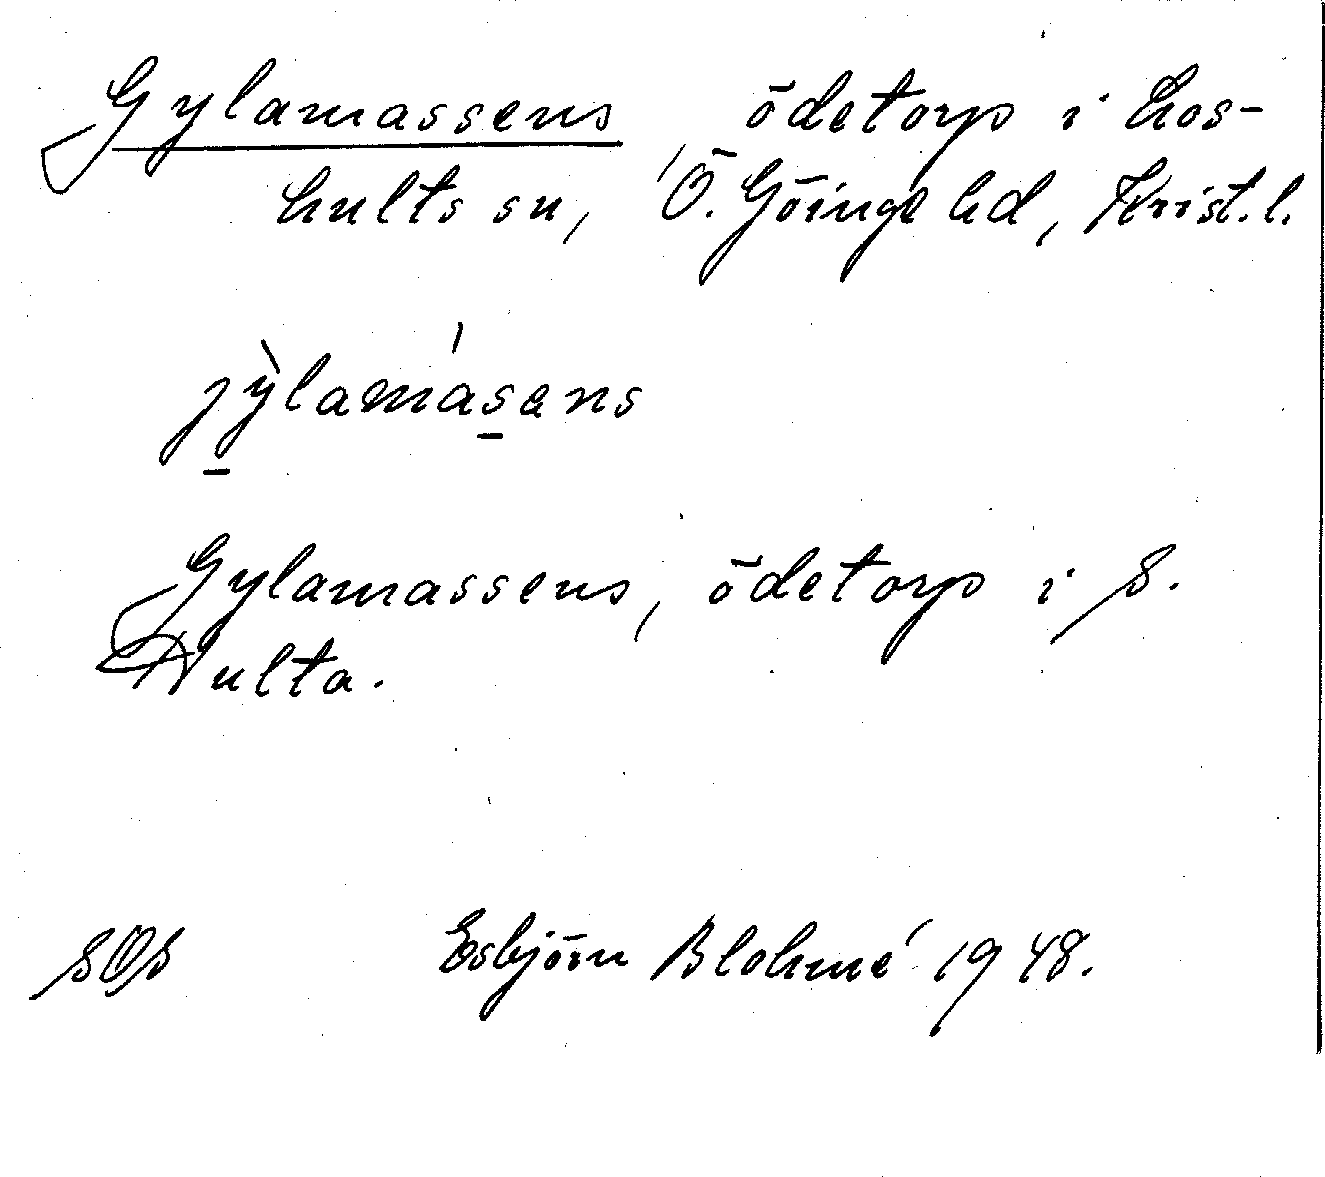 Gylamassens ödetorp i Los-
hults sn, Ö. Göinge hd, Krist. l.
jỳ̠lamás̠ens
Gylamassens, ödetorp i S.
Hulta.
SOS Esbjörn Blohmé 1948.